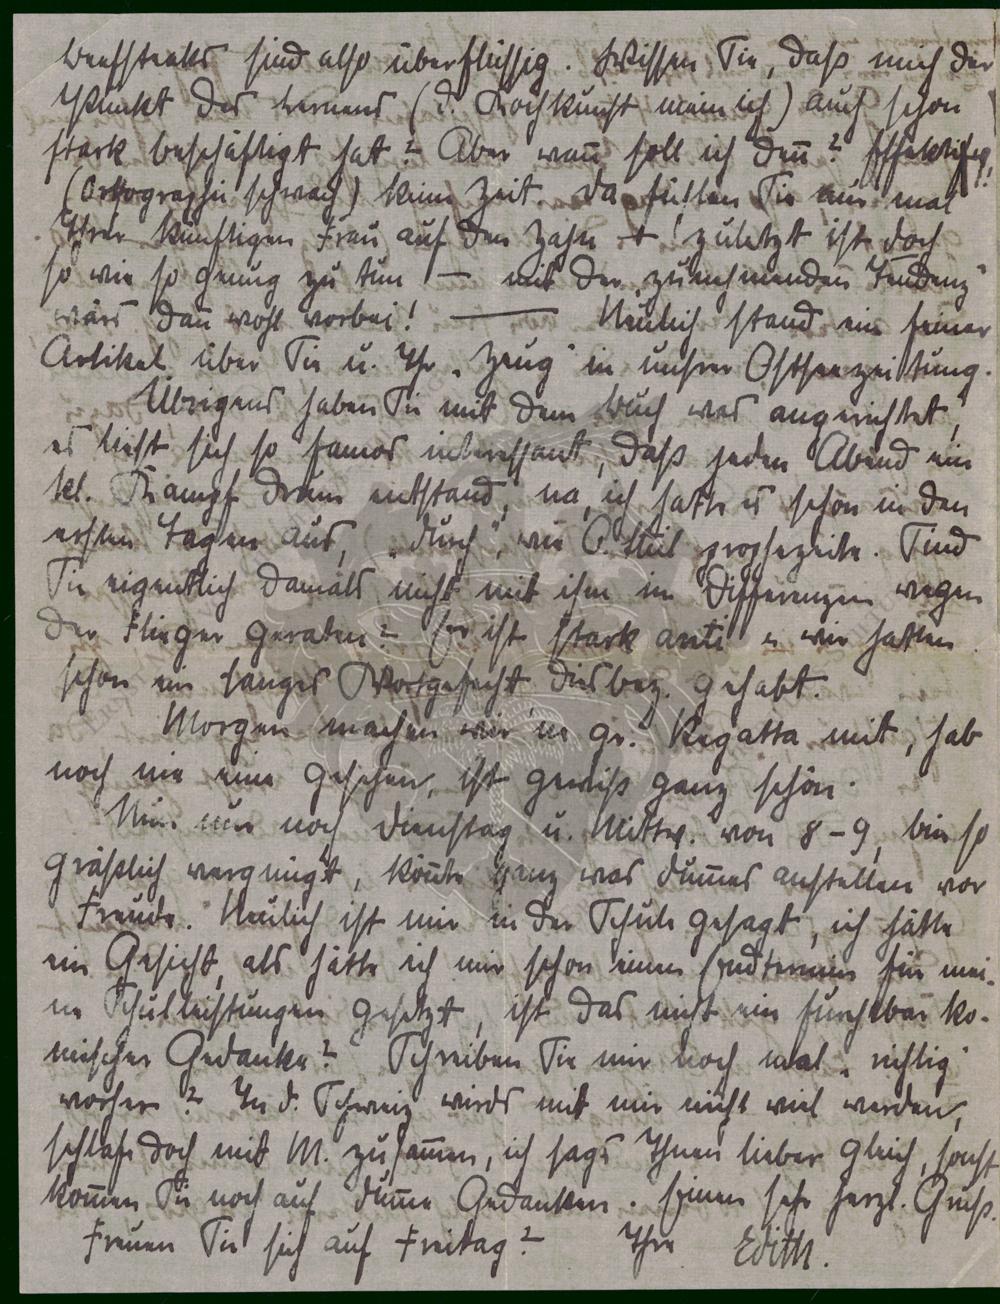 Beefsteaks sind also überflüssig. Wissen Sie, daß mich der
Punkt des Lernens (d. Kochkunst mein ich) auch schon
stark beschäftigt hat? Aber wan̄ soll ich den̄?
(Orthographie schwach) keine Zeit. Da fühlen Sie nur mal
Ihrer künftigen Frau auf den Zahn +! zuletzt ist doch
so wie so genug zu tun — mit der „zunehmenden Tendenz"
wärs dan̄ wohl vorbei! — Neulich stand ein feiner
Artikel über Sie u. Ihr „Zeug" in unsrer Ostseezeitung.
Übrigens haben Sie mit dem Buch was angerichtet,
es liest sich so famos interessant, daß jeden Abend ein
kl. Kampf drum entstand, na, ich hatte es schon in den
ersten Tagen aus, „durch", wie O. prophezeite. Sind
Sie eigentlich damals nicht mit ihm in Differenzen wegen
der Flieger geraten? Er ist stark anti u wir hatten
schon ein langes Wortgefecht diesbez. gehabt.
Morgen machen wir 'ne gr. Regatta mit, hab
noch nie eine gesehen, ist gewiß ganz schön.
Nun nur noch Dienstag u. Mittw. von 8–9, bin so
gräßlich vergnügt, kön̄te ganz was dum̄es anstellen vor
Freude. Neulich ist mir in der Schule gesagt, ich hätte
ein Gesicht, als hätte ich mir schon einen Endtermin für mei-
ne Schulleistungen gesetzt, ist das nicht ein furchtbar ko-
mischer Gedanke? Schreiben Sie mir noch mal „richtig"
vorher? In d. Schweiz wirds mit mir nicht viel werden,
schlafe doch mit M. zusam̄en, ich sags Ihnen lieber gleich, sonst
kom̄en Sie noch auf dum̄e Gedanken. Einen sehr herzl. Gruß.
Freuen Sie sich auf Freitag? Ihre Edith.